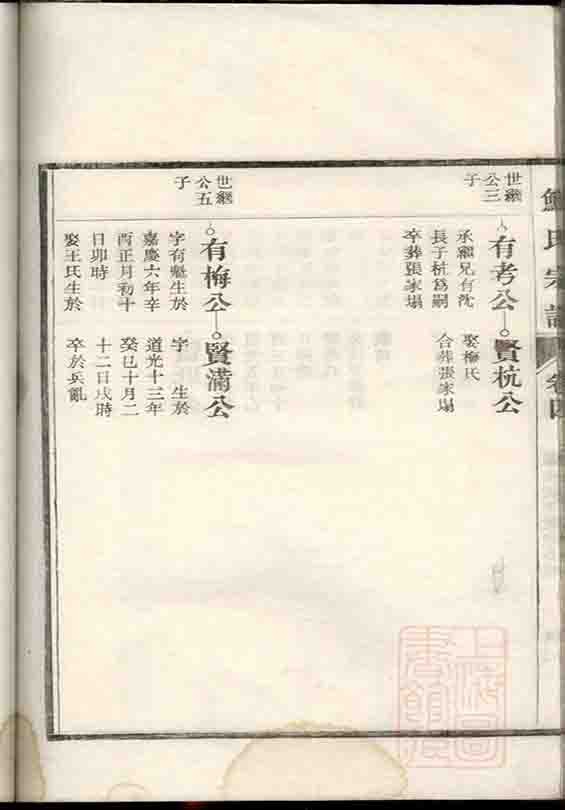 氏宗譜
卷四
世繼
公三
子
有考公
承繼兄有沈
長子杭爲嗣
卒葬張家塌
賢杭公
娶梅氏
合葬張家塌
世繼
公五
子
有梅公
字有魁生於
嘉慶六年辛
酉正月初十
日卯時
娶王氏生於
賢滿公
字　生於
道光十三年
癸巳十月二
十二日戌時
卒於兵亂
上海圖
書館藏